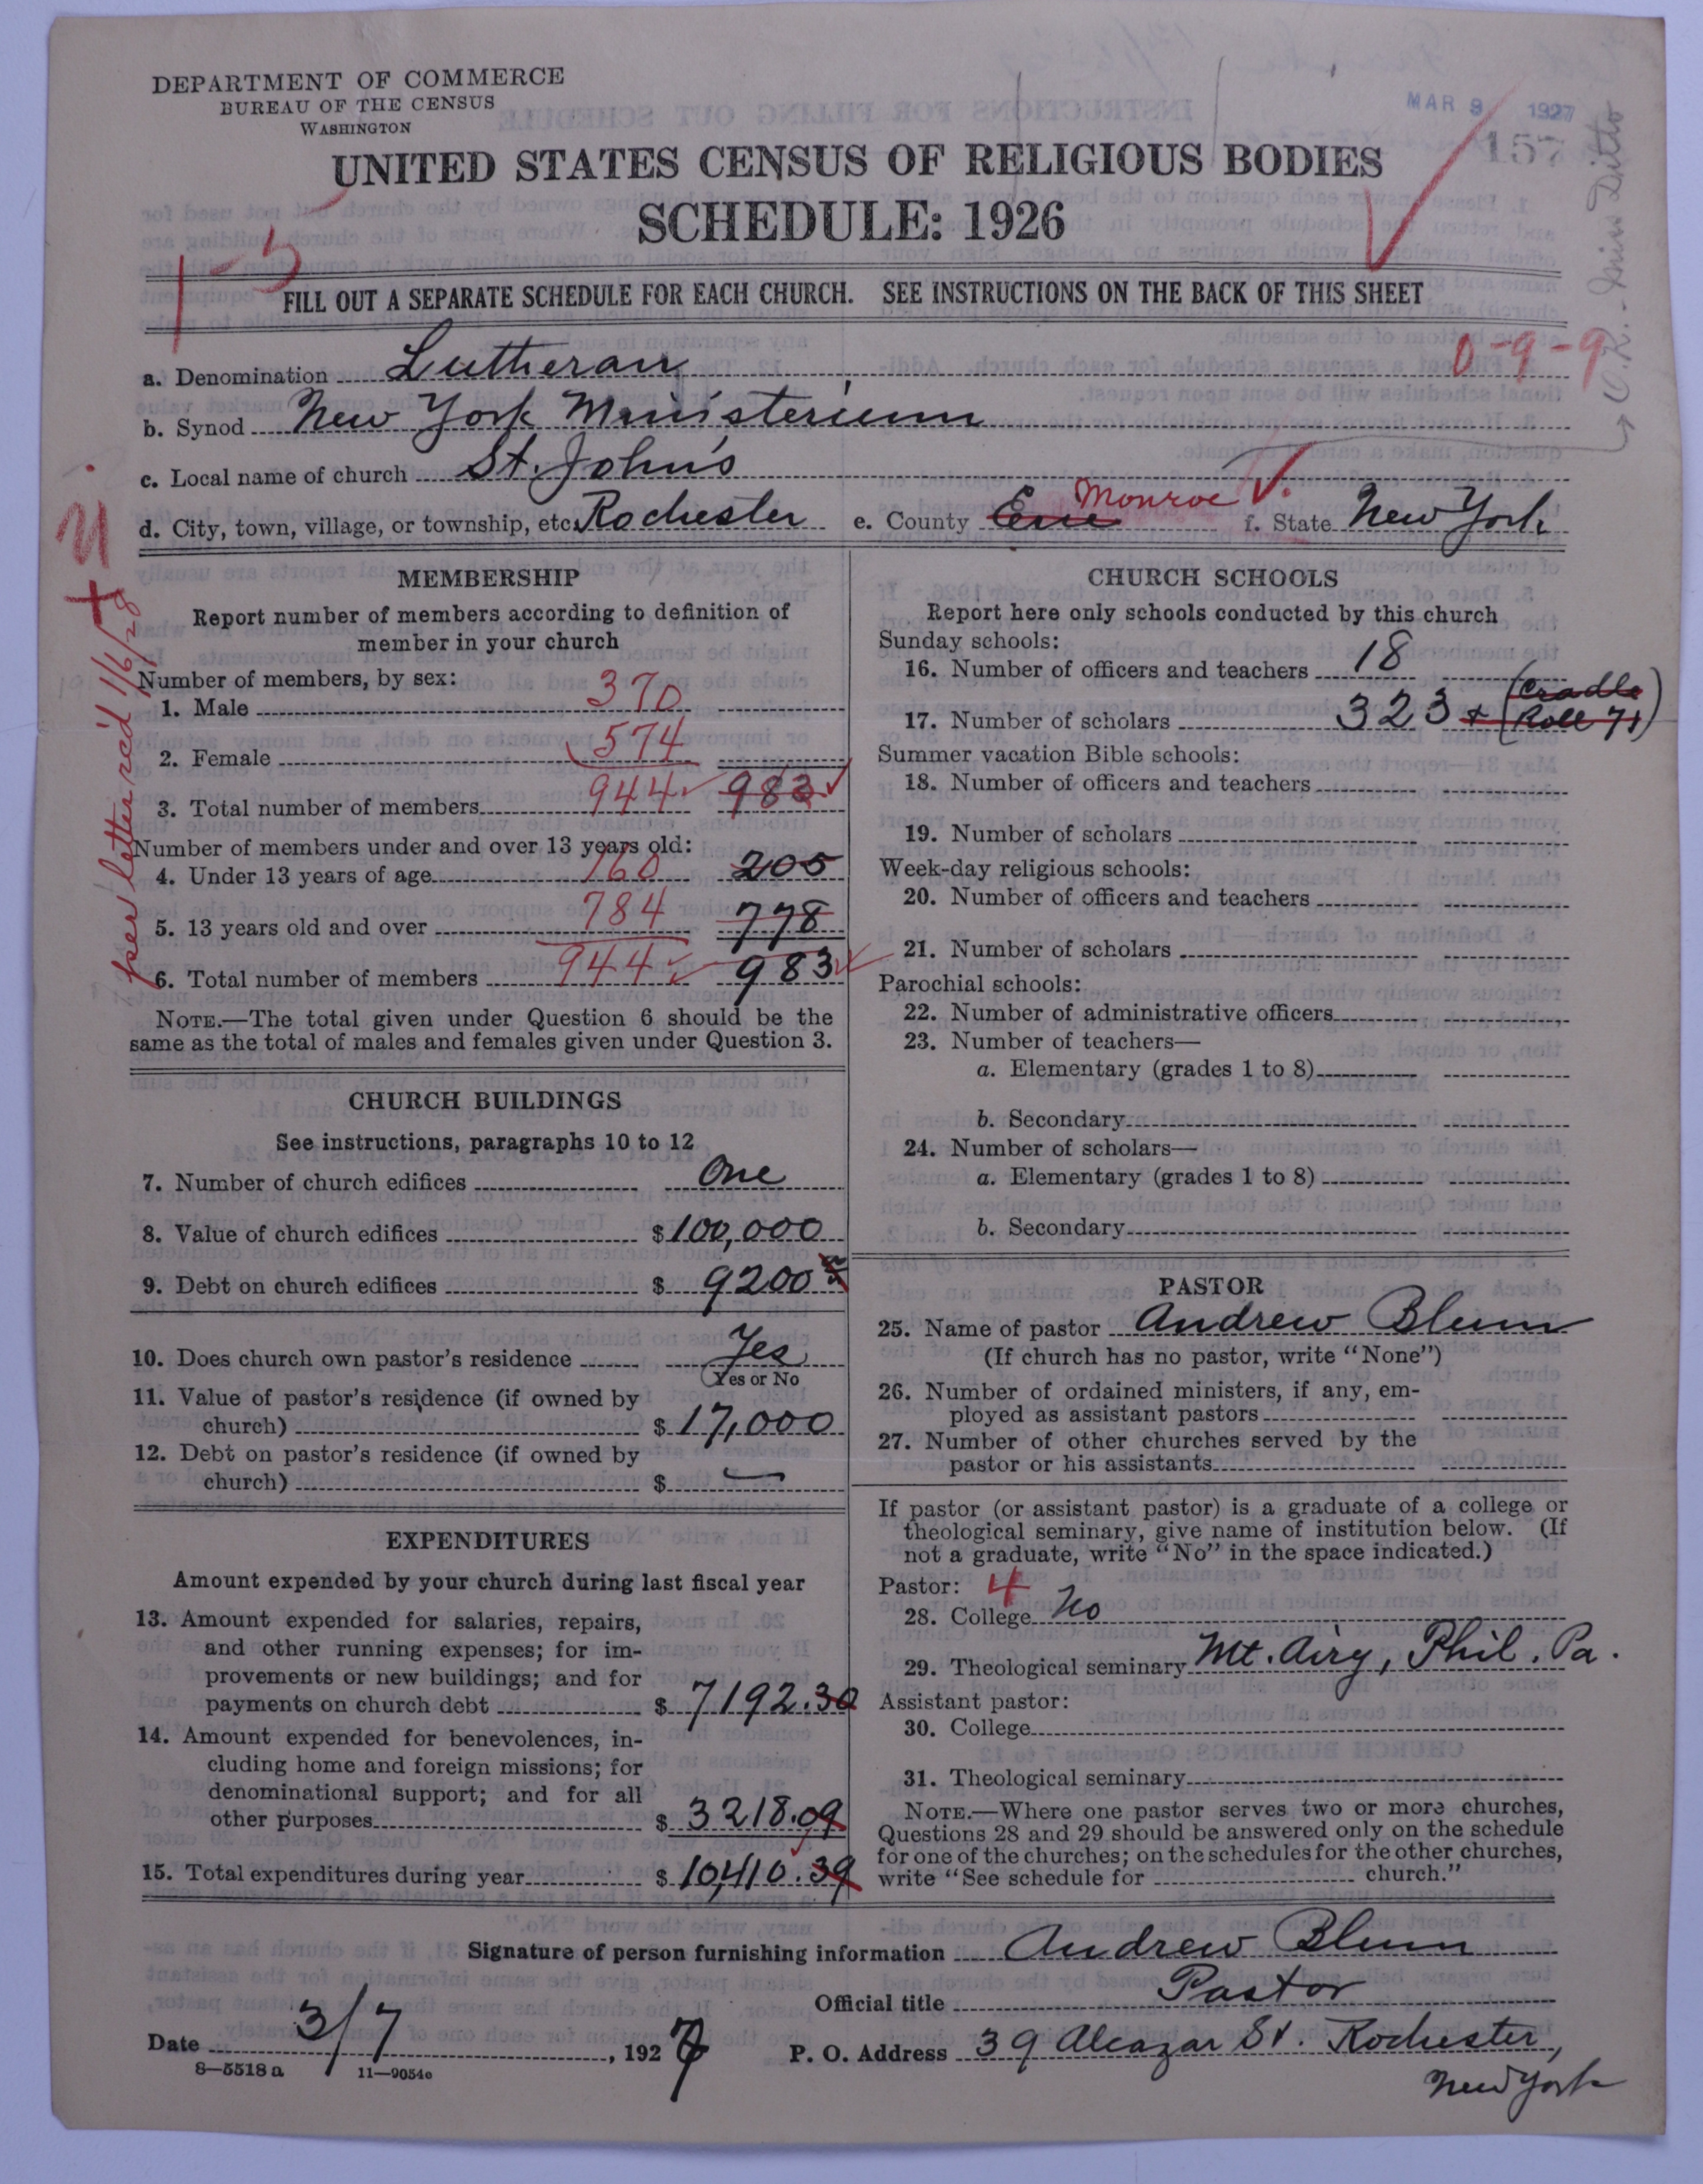 DEPARTMENT OF COMMERCE
BUREAU OF THE CENSUS
WASHINGTON
MAR 9 1927
157
UNITED STATES CENSUS OF RELIGIOUS BODIES
SCHEDULE: 1926
1-5
FILL OUT A SEPARATE SCHEDULE FOR EACH CHURCH. SEE INSTRUCTIONS ON THE BACK OF THIS SHEET
0-9-9
O.K. - Miss Ditto
a. Denomination Lutheran
b. Synod New York Ministerium
c. Local name of church St. John's
d. City, town, village, or township, etc. Rochester e. County Erie Monroe f. State New York
per letter rec'd 1/6/28
MEMBERSHIP
Report number of members according to definition of
member in your church
Number of members, by sex:
1. Male 370
2. Female 574
3. Total number of members 944 983
Number of members under and over 13 years old:
4. Under 13 years of age 160 205
5. 13 years old and over 784 778
6. Total number of members 944 983
NOTE.—The total given under Question 6 should be the
same as the total of males and females given under Question 3.
CHURCH BUILDINGS
See instructions, paragraphs 10 to 12
7. Number of church edifices One
8. Value of church edifices $100,000
9. Debt on church edifices $ 9200
10. Does church own pastor's residence Yes
Yes or No
11. Value of pastor's residence (if owned by
church) $17,000
12. Debt on pastor's residence (if owned by
church) $ —
EXPENDITURES
Amount expended by your church during last fiscal year
13. Amount expended for salaries, repairs,
and other running expenses; for im-
provements or new buildings; and for
payments on church debt $ 7192.30
14. Amount expended for benevolences, in-
cluding home and foreign missions; for
denominational support; and for all
other purposes $ 3218.09
15. Total expenditures during year $ 10,410.39
CHURCH SCHOOLS
Report here only schools conducted by this church
Sunday schools:
16. Number of officers and teachers 18
17. Number of scholars 323 + (Cradle
Roll 71)
Summer vacation Bible schools:
18. Number of officers and teachers
19. Number of scholars
Week-day religious schools:
20. Number of officers and teachers
21. Number of scholars
Parochial schools:
22. Number of administrative officers
23. Number of teachers—
a. Elementary (grades 1 to 8)
b. Secondary
24. Number of scholars—
a. Elementary (grades 1 to 8)
b. Secondary
PASTOR
25. Name of pastor Andrew Blum
(If church has no pastor, write "None")
26. Number of ordained ministers, if any, em-
ployed as assistant pastors
27. Number of other churches served by the
pastor or his assistants
If pastor (or assistant pastor) is a graduate of a college or
theological seminary, give name of institution below. (If
not a graduate, write "No" in the space indicated.)
Pastor: 4
28. College No
29. Theological seminary Mt. Airy, Phil. Pa.
Assistant pastor:
30. College
31. Theological seminary
NOTE.—Where one pastor serves two or more churches,
Questions 28 and 29 should be answered only on the schedule
for one of the churches; on the schedules for the other churches,
write "See schedule for church."
Signature of person furnishing information Andrew Blum
Official title Pastor
Date 3/7, 1927 P. O. Address 39 Alcazar St. Rochester,
New York
8—5518 a 11—9054e